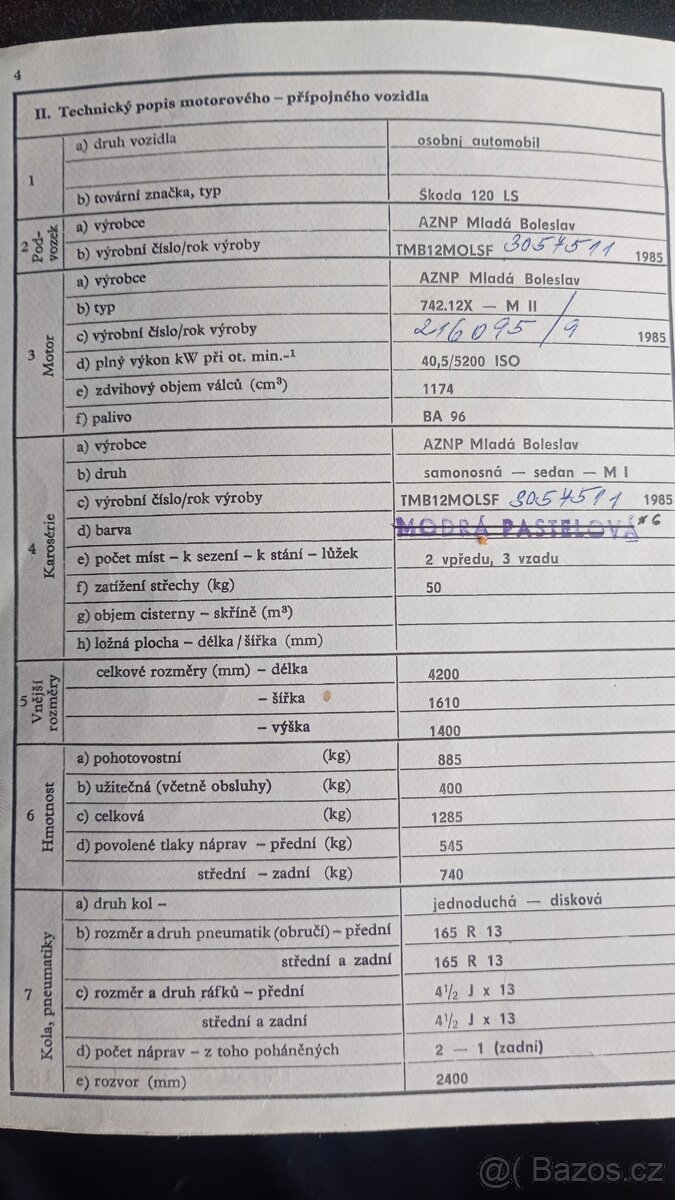 4
II. Technický popis motorového – přípojného vozidla
1
a) druh vozidla osobní automobil
b) tovární značka, typ Škoda 120 LS
2 Pod-vozek
a) výrobce AZNP Mladá Boleslav
b) výrobní číslo/rok výroby TMB12MOLSF 3057511 1985
3 Motor
a) výrobce AZNP Mladá Boleslav
b) typ 742.12X — M II
c) výrobní číslo/rok výroby 216095/9 1985
d) plný výkon kW při ot. min.-¹ 40,5/5200 ISO
e) zdvihový objem válců (cm³) 1174
f) palivo BA 96
4 Karosérie
a) výrobce AZNP Mladá Boleslav
b) druh samonosná — sedan — M I
c) výrobní číslo/rok výroby TMB12MOLSF 3057511 1985
d) barva MODRÁ PASTELOVÁ *6
e) počet míst – k sezení – k stání – lůžek 2 vpředu, 3 vzadu
f) zatížení střechy (kg) 50
g) objem cisterny – skříně (m³)
h) ložná plocha – délka/šířka (mm)
5 Vnější rozměry
celkové rozměry (mm) – délka 4200
– šířka 1610
– výška 1400
6 Hmotnost
a) pohotovostní (kg) 885
b) užitečná (včetně obsluhy) (kg) 400
c) celková (kg) 1285
d) povolené tlaky náprav – přední (kg) 545
střední – zadní (kg) 740
7 Kola, pneumatiky
a) druh kol – jednoduchá — disková
b) rozměr a druh pneumatik (obručí) – přední 165 R 13
střední a zadní 165 R 13
c) rozměr a druh ráfků – přední 4½ J x 13
střední a zadní 4½ J x 13
d) počet náprav – z toho poháněných 2 — 1 (zadní)
e) rozvor (mm) 2400
@( Bazos.cz